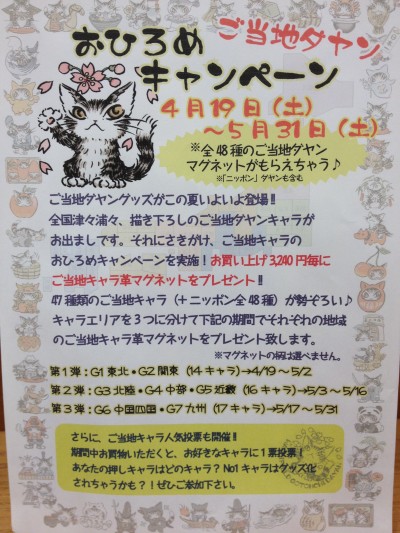 ご当地ダヤン
おひろめ
キャンペーン
4月19日(土)
～5月31日(土)
※全48種のご当地ダヤン
マグネットがもらえちゃう♪
※「ニッポン」ダヤンも含む
ご当地ダヤングッズがこの夏いよいよ登場!!
全国津々浦々、描き下ろしのご当地ダヤンキャラが
お出ましです。それにさきがけ、ご当地キャラの
おひろめキャンペーンを実施!お買い上げ3,240円毎に
ご当地キャラ革マグネットをプレゼント!!
47種類のご当地キャラ(+ニッポン全48種)が勢ぞろい♪
キャラエリアを3つに分けて下記の期間でそれぞれの地域
のご当地キャラ革マグネットをプレゼント致します。
※マグネットの柄は選べません。
第1弾:G1東北・G2関東(14キャラ)→4/19～5/2
第2弾:G3北陸・G4中部・G5近畿(16キャラ)→5/3～5/16
第3弾:G6中国四国・G7九州(17キャラ)→5/17～5/31
さらに、ご当地キャラ人気投票も開催!!
期間中お買物いただくと、お好きなキャラに1票投票!
あなたの押しキャラはどのキャラ?No1キャラはグッズ化
されちゃうかも?!ぜひご参加下さい。